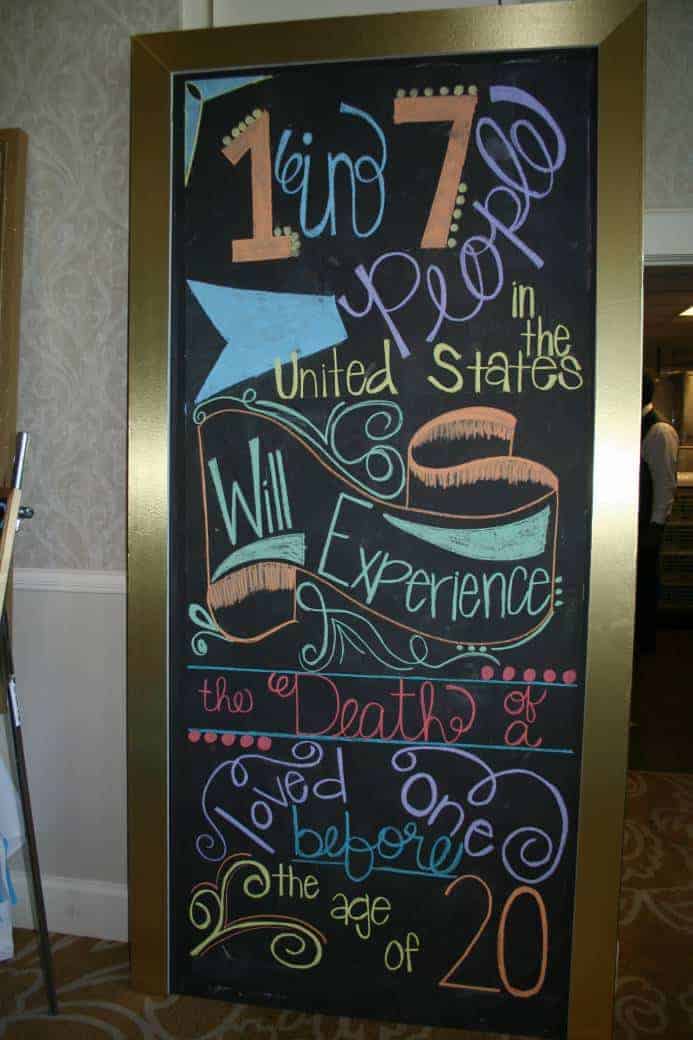 1 in 7
People
in
the
United States
Will
Experience
the Death of
a
loved one
before
the age
of 20